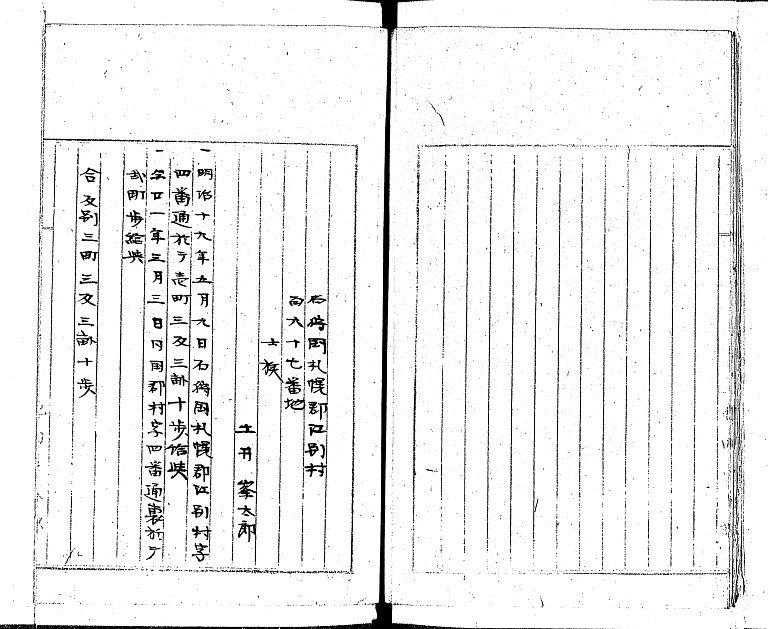 石狩国札幌郡江別村
百六十七番地
士族
土井峯太郎
一明治十九年五月九日石狩国札幌郡江別村字
四番通於テ壱町三反三畝十歩給与
一仝廿一年三月三日同国郡村字四番通裏於テ
弐町歩給与
合反別三町三反三畝十歩